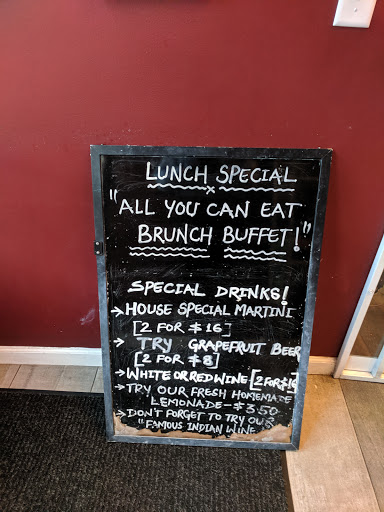 LUNCH SPECIAL
x
"ALL YOU CAN EAT
BRUNCH BUFFET!"
SPECIAL DRINKS!
→HOUSE SPECIAL MARTINI
[2 FOR $16]
→ TRY GRAPEFRUIT BEER
[2 FOR $8]
→WHITE OR RED WINE [2 FOR $16
→TRY OUR FRESH HOMEMADE
LEMONADE-$3.50
→DON'T FORGET TO TRY OUR
"FAMOUS INDIAN WINE